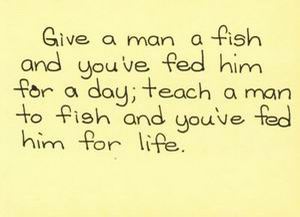 Give a man a fish
and you've fed him
for a day; teach a man
to fish and you've fed
him for life.